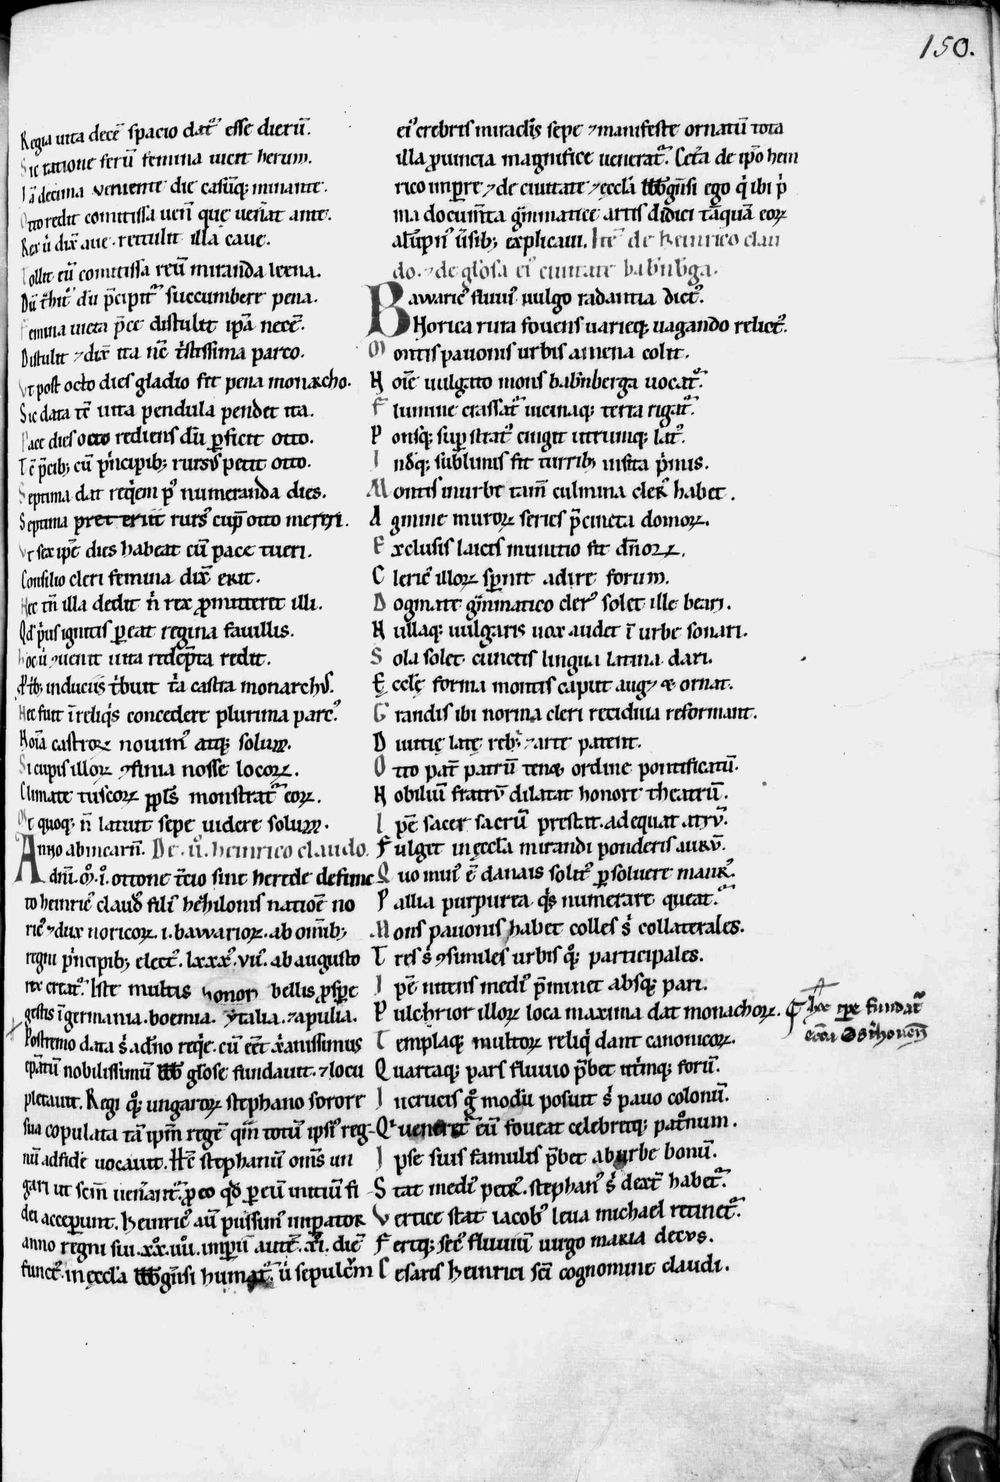 150.
Regia uita decē spacio dat᷒ esse dierū.
Sic ratione ferū femina uicit herum.
Iā decima ueniente die casūq; minante.
Otto redit comitissa uenit que uen̄at ante.
Rex ū dix̄ aue. rettulit illa caue.
Tollit eū comitissa reū miranda leena.
Dū t̄hit᷒ dū p̄cipit᷒ succumbere pena.
Femina uicta p̄ce distulit ipā necē.
Distulit ⁊ dix̄ ita nē t̄stissima parco.
Vt post octo dies gladio fit pena monarcho.
Sic data tē uita pendula pendet ita.
Pace dies octo rediens dū ꝑficit otto.
Tē p̄cib; cū p̄ncipib; rursus petit otto.
Septima dat reqīem p᷒ numeranda dies.
Septima rurs᷒ cup̄ otto
Vt sex ipē dies habeat cū pace tueri.
Consilio cleri femina dix̄ erit.
Hec tn̄ illa dedit n̄ rex ꝓmitteret illi.
Qd p̄us ignitis ꝑeat regina fauillis.
hoc ū ꝯuenit uita redēpta redit.
induciis t̄buit t̄a castra monarchus.
Hec fuit ī reliqīs concedere plurima parc᷒.
Noīa castroꝝ nouim᷒ atq; solum.
Si cupis illoꝝ ꝯfinia nosse locoꝝ.
Climate tuscoꝝ monstrat᷒ eoꝝ.
quoq; n̄ latuit sepe uidere solum.
Anno ab incarn̄. De. ū. heinrico claudo.
dnī. M̊. ı̊. ottone t̄cio sine herede defunc
to heinric᷒ claud᷒ fili᷒ hēhilonis natiōe no
ric᷒ ⁊ dux noricoꝝ .i. bawarioꝝ. ab om̄ib;
regni p̄ncipib; elect᷒. lxxx᷒. vii᷒. ab augusto
rex creat᷒. Iste multis honor bellis ꝓspe
gestis ī germania. boemia. ytalia. ⁊ apulia.
Postremo data s̄ a dn̄o reqīe. cū eēt xp̄ianissimus
epātum nobilissimū gl̄ose fundauit. ⁊ locu
pletauit. Regi q᷒; ungaroꝝ stephano sorore
sua copulata tā ipm̄ regē qm̄ totū ipsi᷒ reg-
nū ad fidē uocauit. Hc̄ stephanū om̄s un
gari ut scm̄ uen̄ant᷒. ꝓ eo qd ꝑ eū initiū fi
dei acceperunt. heinric᷒ aū p̄issim᷒ imperator
anno regni sui .xx̊. iiıı̊. imperii autē. xı̊. diē
funct᷒. in eccl̄a gn̄si humat᷒. ū sepulc̄m
ei᷒ crebris miraclis sepe ⁊ manifeste ornatū tota
illa ꝓuincia magnifice uenerat᷒. Cet̄a de ipō hein
rico impr̄e ⁊ de ciuitate ⁊ eccl̄a gn̄si ego qī ibi p̄
ma docum̄ta gm̄matice artis didici tāquā eoꝝ
al᷒upn᷒ ūsib; explicaui. Itē de heinrico clau
do. ⁊ de gl̄osa ei᷒ ciuitate bab̄nb̄ga.
Bawaric᷒ fluui᷒ uulgo radantia dict᷒.
Norica rura fouens uarieq; uagando relict᷒.
Montis pauonis urbis amena colit.
Noīe uulgato mons bab̄nberga uocat᷒.
Flumine crassat᷒ uicinaq; terra rigat᷒.
Ponsq; suꝑstrat᷒ cingit utrumq; lat᷒.
Indq; sublimis fit turrib; uisita p̄mis.
Montis in urbe tam̄ culmina cler᷒ habet.
Agmine muroꝝ series p̄cincta domoꝝ.
Exclusis laicis munitio fit dn̄oꝝ.
Cleric᷒ illoꝝ spernit adire forum.
Dogmate gm̄matico cler᷒ solet ille beari.
Nullaq; uulgaris uox audet ī urbe sonari.
Sola solet cunctis lingua latina dari.
Eccl̄ę forma montis caput auget ornat.
Grandis ibi norma cleri recidiua reformant.
Diuitię latę reb; ⁊ arte patent.
Otto pat̄ patrū tenet ordine pontificatū.
Nobiliū fratrū dilatat honore theatrū.
Ipē sacer sacrū prestat. adequat atrū.
Fulget in eccl̄a mirandi ponderis aurū.
Quo min᷒ ē danais solit᷒ ꝑsoluere maur᷒.
Pallia purpurea q̄s numerare queat᷒.
Mons pauonis habet colles s̄ collaterales.
Tres s̄ ꝯsimiles urbis q᷒; participales.
Ipē nitens medi᷒ p̄minet absq; pari.
Pulchrior illoꝝ loca maxima dat monachoꝝ.
Templaq; multoꝝ reliqī dant canonicoꝝ.
Quartaq; pars fluuio p̄bet ut̄mq; forū.
Incrucis q᷒ modū posuit s̄ pauo colonū.
Qi ueneret eū foueat celebretq; pat̄num.
Ipse suis famulis p̄bet ab urbe bonū.
Stat medi᷒ petr᷒. stephan᷒ s̄ dext̄ habet᷒.
Vertice stat iacob᷒ leua michael retinet᷒.
Fertq; sec᷒ fluuiū uirgo maria decus.
Cesaris heinrici sc̄i cognomine claudi.
hoc tpe fundat᷒
eccā Osthouen̄